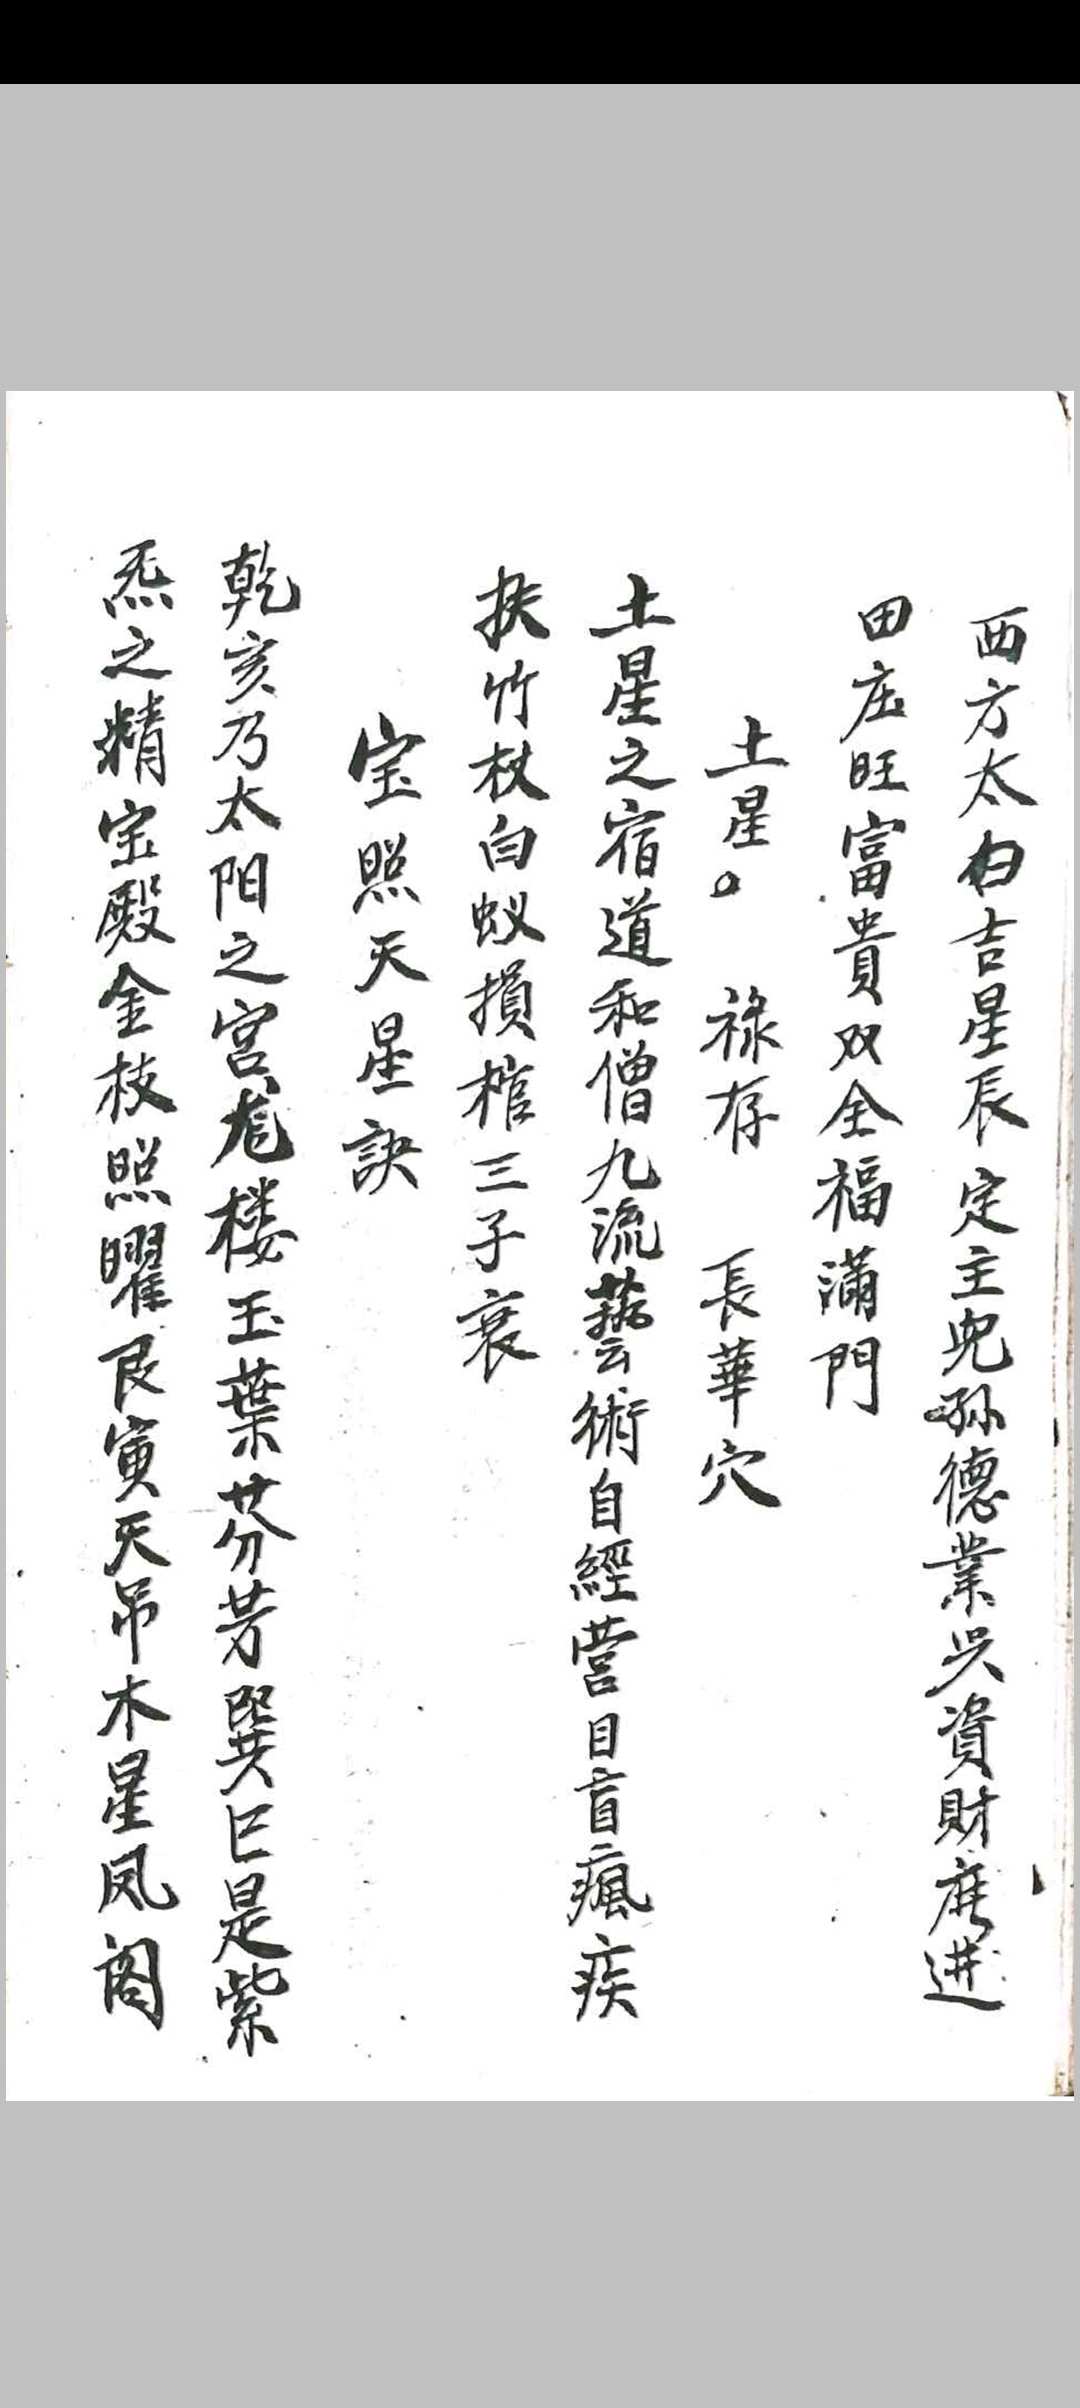 西方太白吉星辰定主兒孫德業兴資財産进
田庄旺富貴双全福满門
土星。 祿存 長華穴
土星之宿道和僧九流藝術自經营目盲瘋疾
扶竹杖白蚁損棺三子衰
宝照天星訣
乾亥乃太阳之宫龙楼玉葉芬芳巽巳是紫
炁之精宝殿金枝照曜艮寅天吊木星凤阁